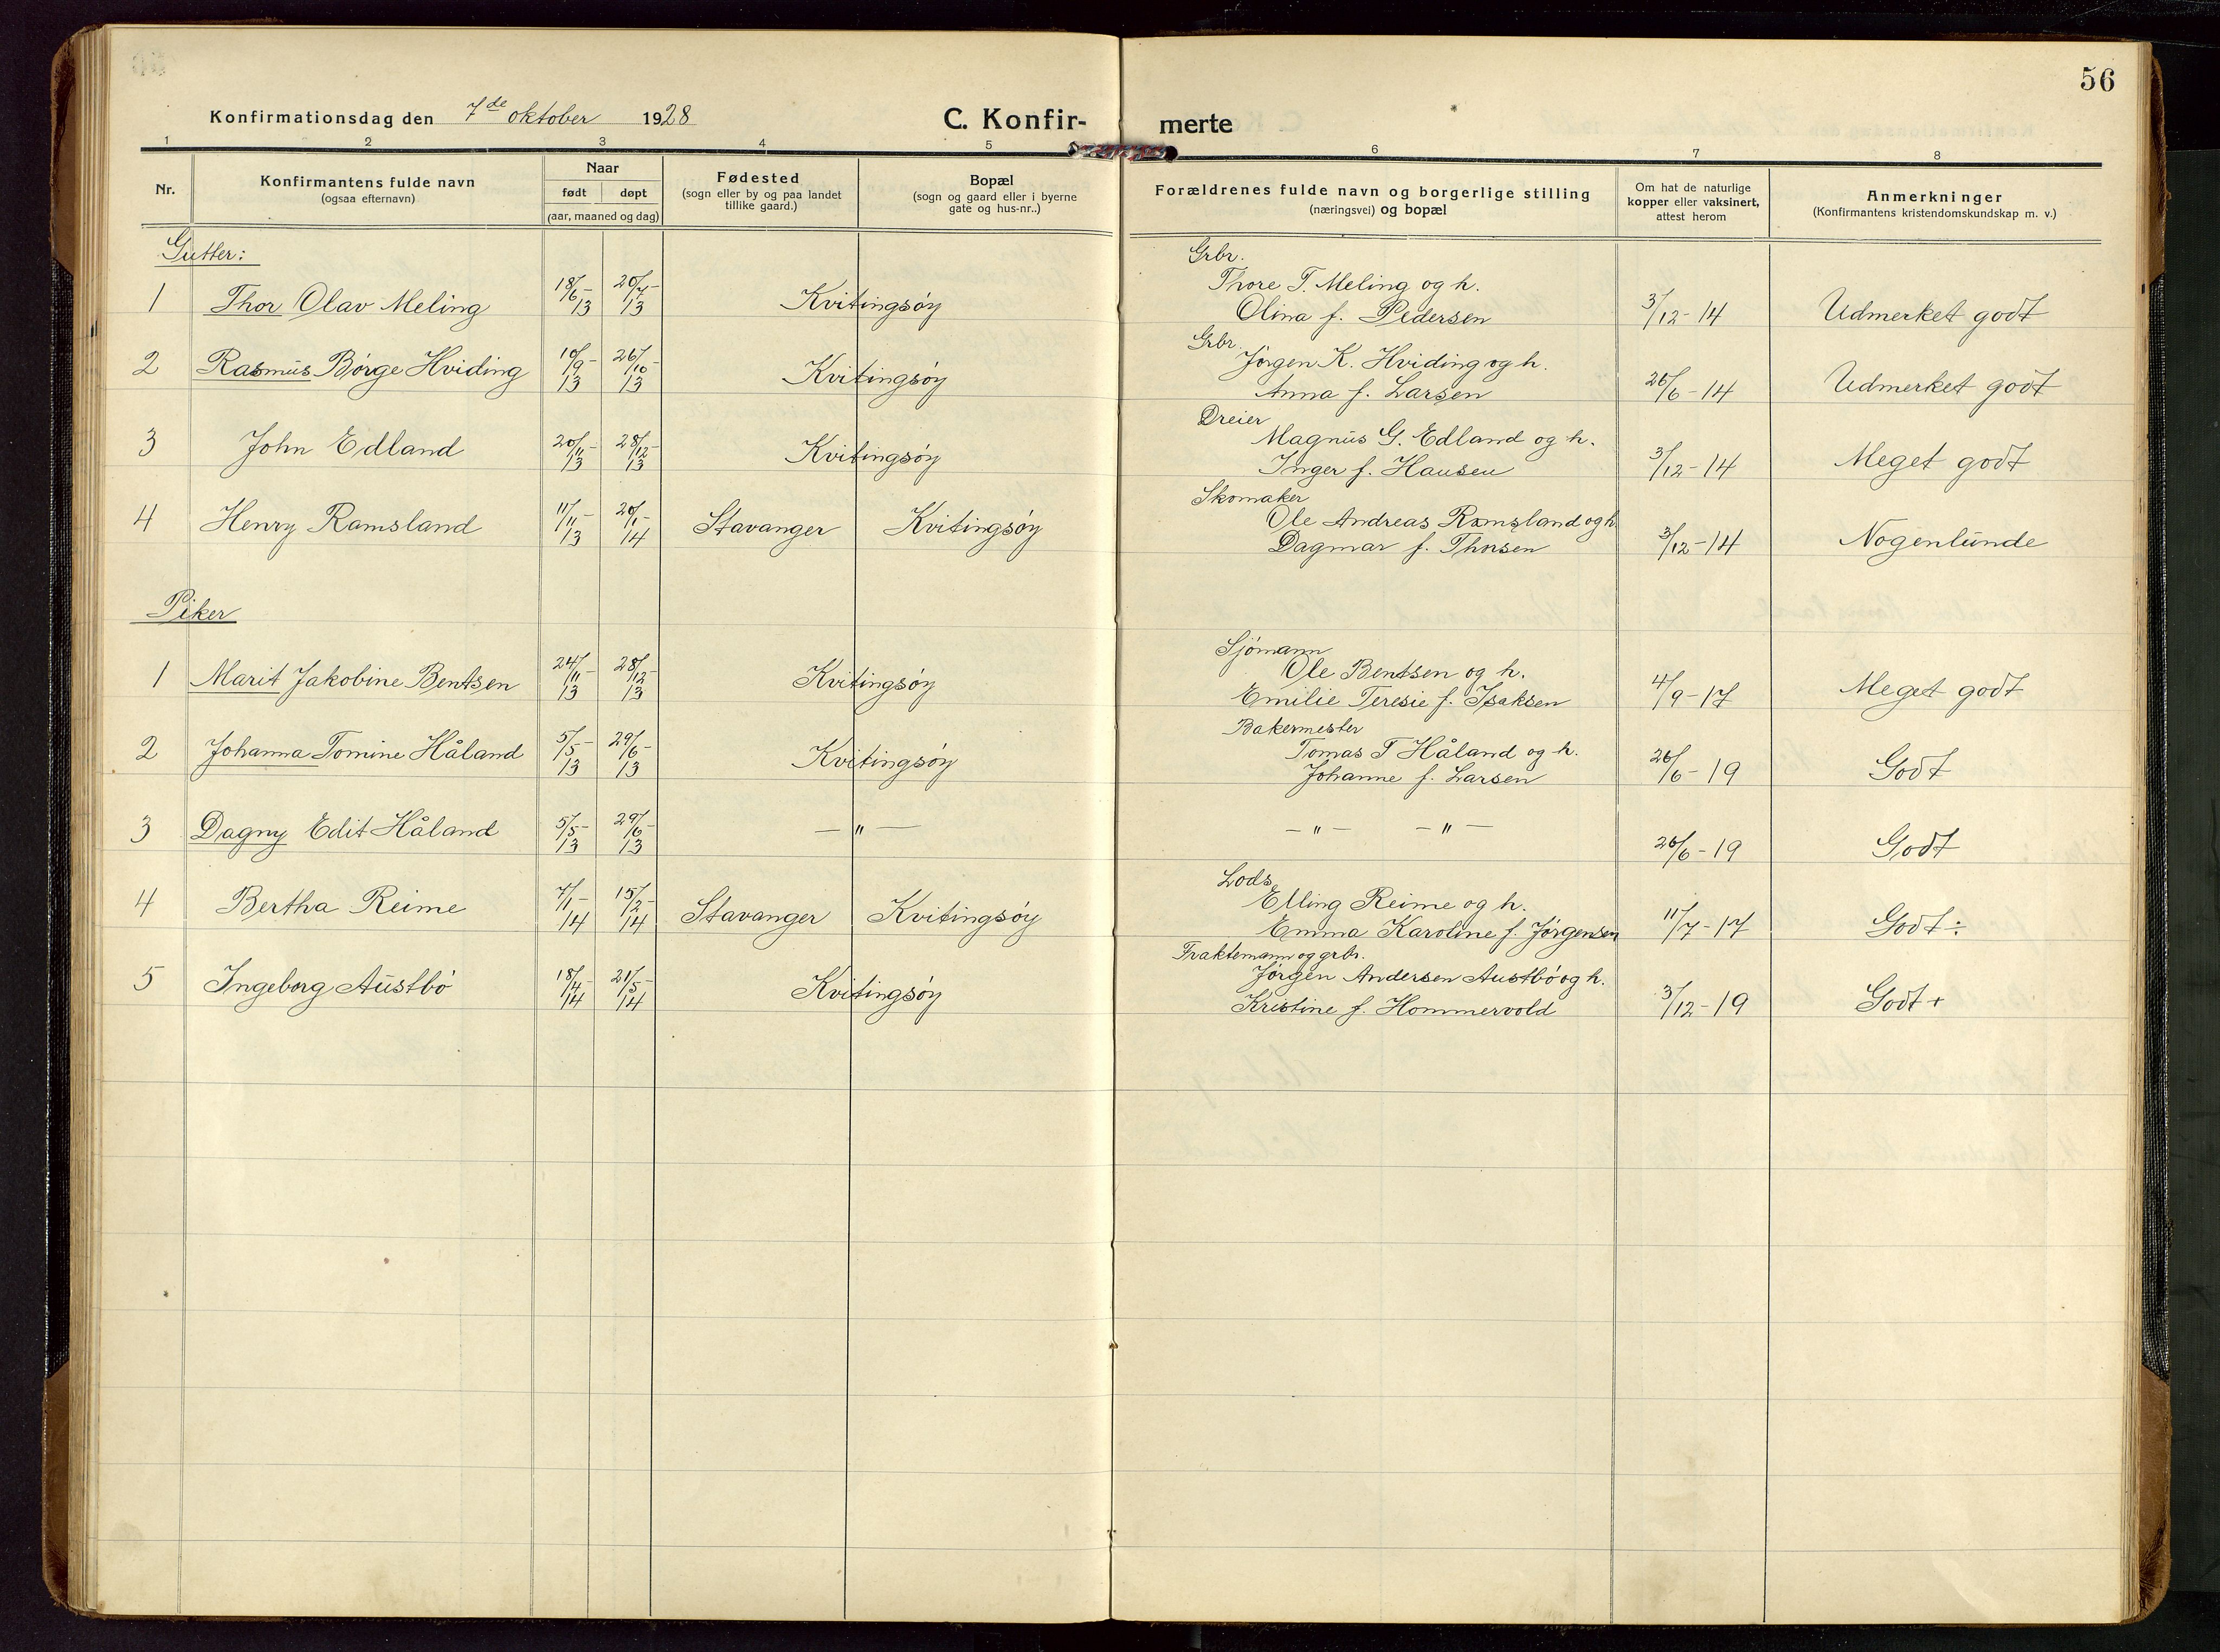 56
Konfirmationsdag den 7de oktober 1928 C. Konfir- merte
1 2 3 4 5 6 7 8
Nr.
Konfirmantens fulde navn
(ogsaa efternavn)
Naar
født døpt
(aar, maaned og dag)
Fødested
(sogn eller by og paa landet
tillike gaard.)
Bopæl
(sogn og gaard eller i byerne
gate og hus-nr..)
Forældrenes fulde navn og borgerlige stilling
(næringsvei) og bopæl
Om hat de naturlige
kopper eller vaksinert,
attest herom
Anmerkninger
(Konfirmantens kristendomskundskap m. v.)
Gutter:
Grbr.
1 Thor Olav Meling 18/6-13 20/7-13 Kvitingsøy Thore T. Meling og h.
Olina f. Pedersen 3/12-14 Udmerket godt
Grbr.
2 Rasmus Børge Hviding 10/9-13 26/10-13 Kvitingsøy Jørgen K. Hviding og h.
Anna f. Larsen 26/6-14 Udmerket godt
Dreier
3 John Edland 20/11-13 28/12-13 Kvitingsøy Magnus G. Edland og h.
Inger f. Hansen 3/12-14 Meget godt
Skomaker
4 Henry Ramsland 11/11-13 20/1-14 Stavanger Kvitingsøy Ole Andreas Ramsland og h
Dagmar f. Thorsen 3/12-14 Nogenlunde
Piker
Sjømann
1 Marit Jakobine Bentsen 24/11-13 28/12-13 Kvitingsøy Ole Bentsen og h.
Emilie Teresie f. Isaksen 4/9-17 Meget godt
Bakermester
2 Johanna Tomine Håland 5/5-13 29/6-13 Kvitingsøy Tomas T Håland og h.
Johanne f. Larsen 26/6-19 Godt
3 Dagny Edit Håland 5/5-13 29/6-13 — " — — " — — " — 26/6-19 Godt
Lods
4 Bertha Reime 7/1-14 15/2-14 Stavanger Kvitingsøy Elling Reime og h.
Emma Karoline f. Jørgensen 11/7-17 Godt ÷
Fraktemann og grbr.
5 Ingeborg Austbø 18/4-14 21/5-14 Kvitingsøy Jørgen Andersen Austbø og h.
Kristine f. Hommervold 3/12-19 Godt +